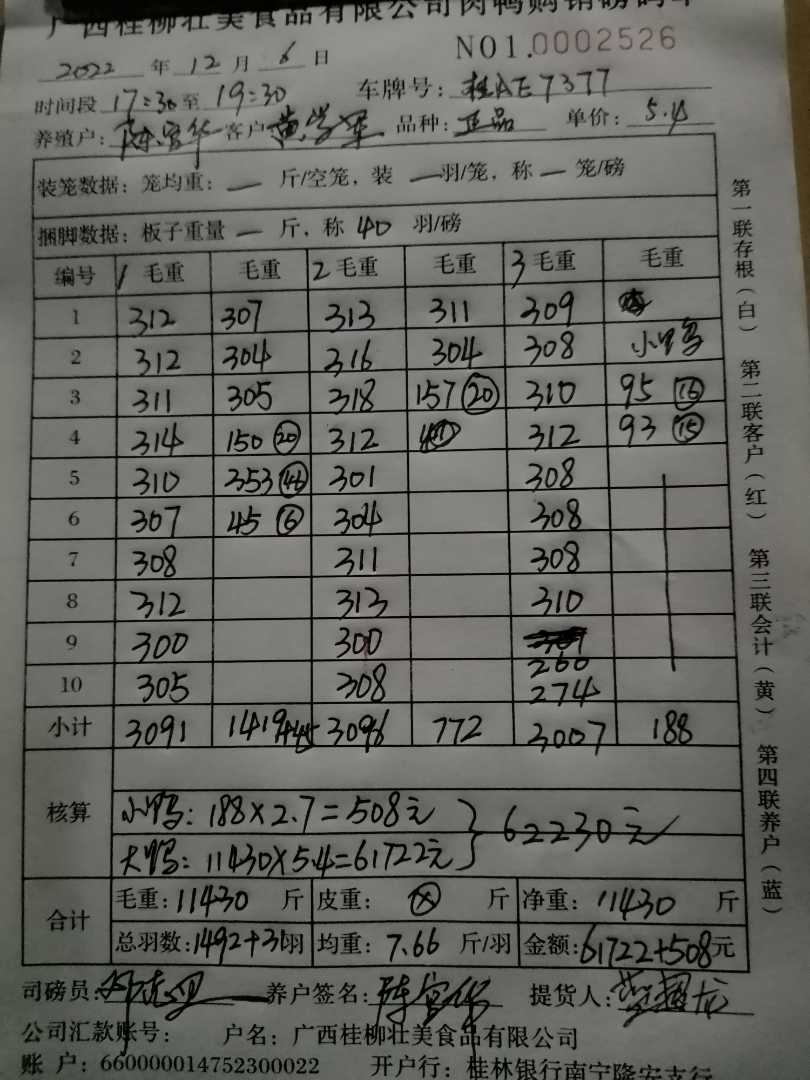 广西桂柳壮美食品有限公司肉鸭购销磅码单
NO1.0002526
2022 年 12 月 6 日
时间段 17:30 至 19:30 车牌号: 桂AE7377
养殖户: 陈宫华 客户 黄 品种: 正品 单价: 5.4
装笼数据: 笼均重: — 斤/空笼, 装 — 羽/笼, 称 — 笼/磅
捆脚数据: 板子重量 — 斤, 称 40 羽/磅
编号 1 毛重 毛重 2 毛重 毛重 3 毛重 毛重
1 312 307 313 311 309
2 312 304 316 304 308 小鸭
3 311 305 318 157 (20) 310 95 (16)
4 314 150 (20) 312 312 93 (15)
5 310 353 (46) 301 308
6 307 45 (6) 304 308
7 308 311 308
8 312 313 310
9 300 300 260
10 305 308 274
小计 3091 1419+45 3096 772 3007 188
核算
小鸭: 188×2.7=508元 } 62230元
大鸭: 11430×5.4=61722元
合计
毛重: 11430 斤 皮重: 斤 净重: 11430 斤
总羽数: 1492+31羽 均重: 7.66 斤/羽 金额: 61722+508元
司磅员: 养户签名: 陈宫华 提货人:
公司汇款账号: 户名: 广西桂柳壮美食品有限公司
账 户: 660000014752300022 开户行: 桂林银行南宁隆安支行
第一联存根(白) 第二联客户(红) 第三联会计(黄) 第四联养户(蓝)